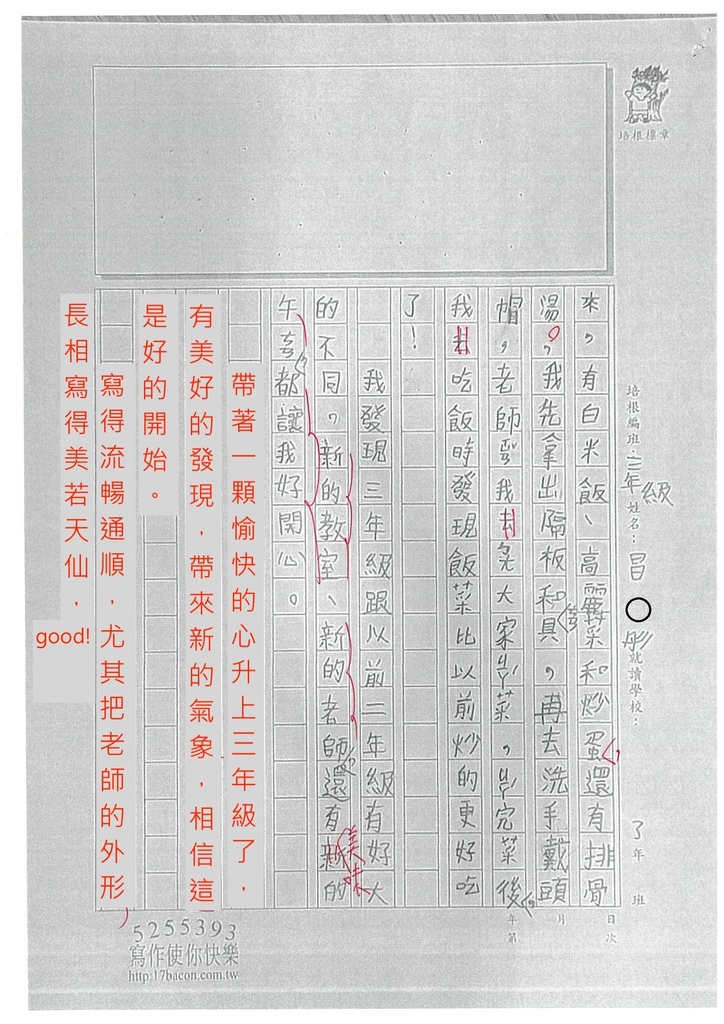 培根標章
培根編班：三年級 姓名：冒○彤 就讀學校： 年 班
年 月 日
第 次
來，有白米飯、高麗菜和炒蛋還有排骨
湯。我先拿出隔板和餐具，再去洗手戴頭
帽，老師幫我去
大家
菜，
完菜後
我去吃飯時發現飯菜比以前炒的更好吃
了！
我發現三年級跟以前二年級有好大
的不同，新的教室、新的老師還有新的美味
午
都讓我好開心。
帶著一顆愉快的心升上三年級了，
有美好的發現，帶來新的氣象，相信這
是好的開始。
寫得流暢通順，尤其把老師的外形
長相寫得美若天仙，
good!
5255393
寫作使你快樂
http:17bacon.com.tw